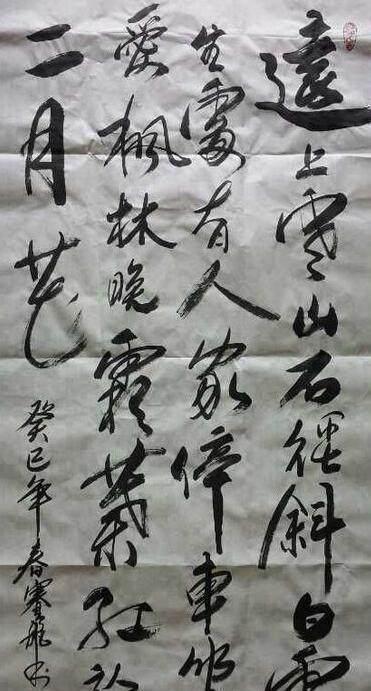 遠上寒山石徑斜白雲
生處有人家停車坐
愛楓林晚霜葉紅於
二月花
癸巳年春賽飛书